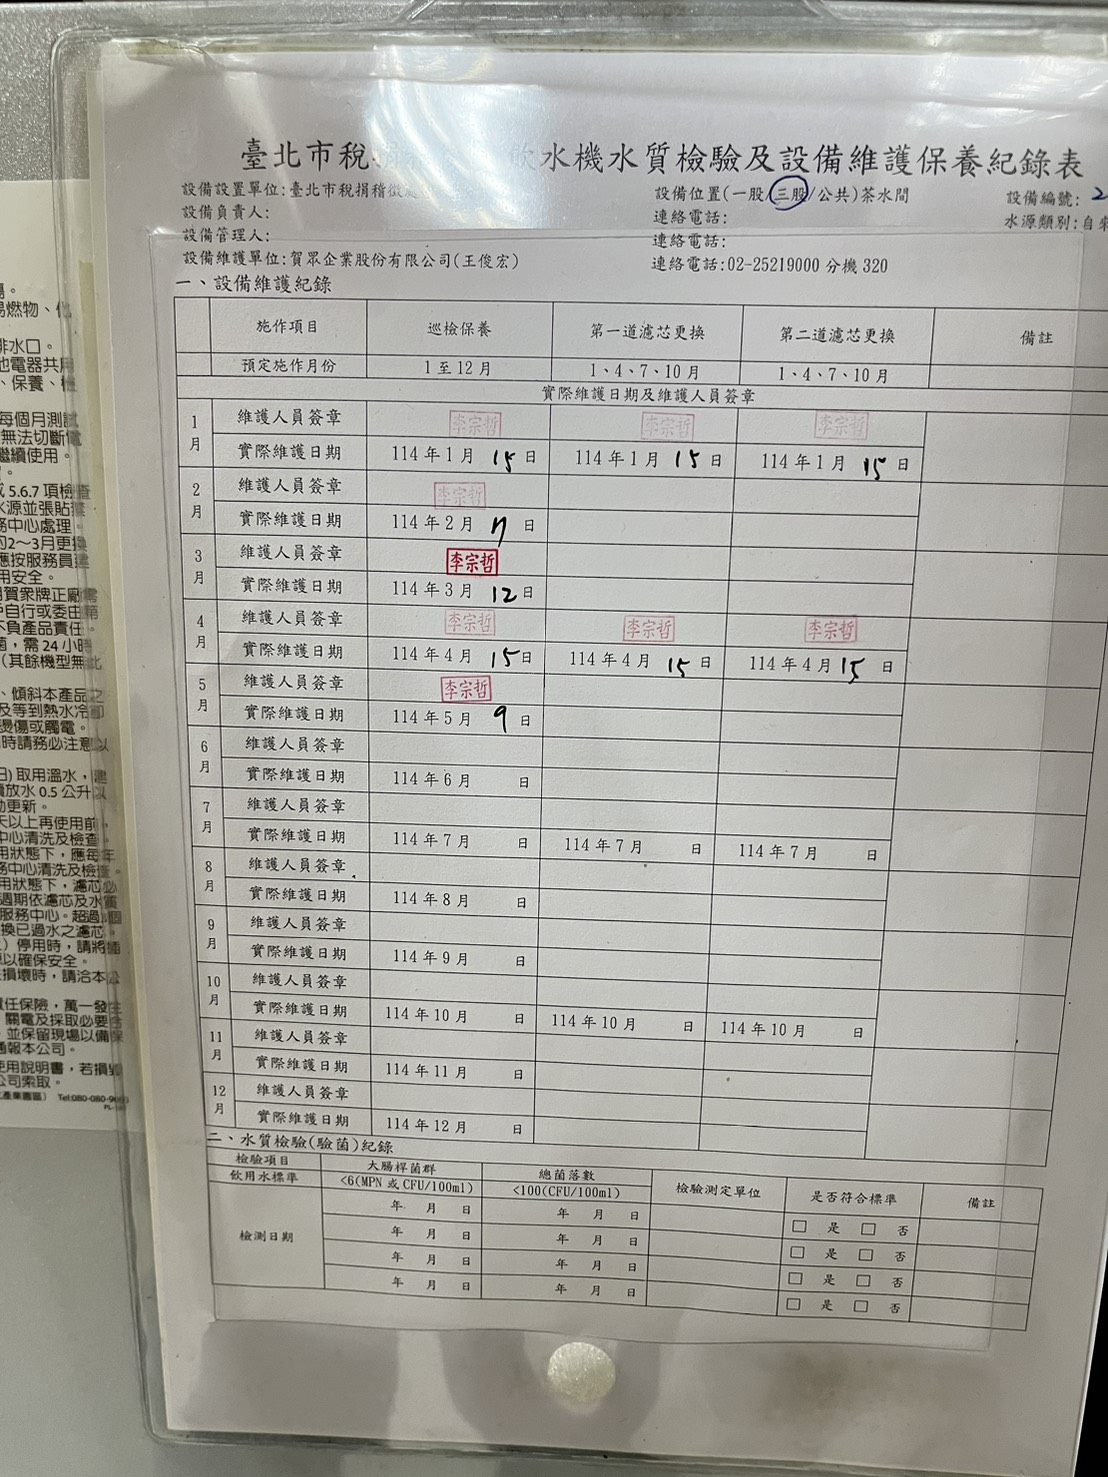 臺北市稅 飲水機水質檢驗及設備維護保養紀錄表
設備設置單位:臺北市稅捐稽徵處 設備位置(一股/三股/公共)茶水間 設備編號: 2
設備負責人: 連絡電話: 水源類別:自來
設備管理人: 連絡電話:
設備維護單位:賀眾企業股份有限公司(王俊宏) 連絡電話:02-25219000 分機 320
一、設備維護紀錄
施作項目 巡檢保養 第一道濾芯更換 第二道濾芯更換 備註
預定施作月份 1 至 12 月 1、4、7、10 月 1、4、7、10 月
實際維護日期及維護人員簽章
1月 維護人員簽章 李宗哲 李宗哲 李宗哲
實際維護日期 114 年 1 月 15 日 114 年 1 月 15 日 114 年 1 月 15 日
2月 維護人員簽章 李宗哲
實際維護日期 114 年 2 月 日
3月 維護人員簽章 李宗哲
實際維護日期 114 年 3 月 12 日
4月 維護人員簽章 李宗哲 李宗哲 李宗哲
實際維護日期 114 年 4 月 15 日 114 年 4 月 15 日 114 年 4 月 15 日
5月 維護人員簽章 李宗哲
實際維護日期 114 年 5 月 9 日
6月 維護人員簽章
實際維護日期 114 年 6 月 日
7月 維護人員簽章
實際維護日期 114 年 7 月 日 114 年 7 月 日 114 年 7 月 日
8月 維護人員簽章
實際維護日期 114 年 8 月 日
9月 維護人員簽章
實際維護日期 114 年 9 月 日
10月 維護人員簽章
實際維護日期 114 年 10 月 日 114 年 10 月 日 114 年 10 月 日
11月 維護人員簽章
實際維護日期 114 年 11 月 日
12月 維護人員簽章
實際維護日期 114 年 12 月 日
二、水質檢驗(驗菌)紀錄
檢驗項目 大腸桿菌群 總菌落數 檢驗測定單位 是否符合標準 備註
飲用水標準 <6(MPN 或 CFU/100ml) <100(CFU/100ml)
檢測日期 年 月 日 年 月 日 □ 是 □ 否
年 月 日 年 月 日 □ 是 □ 否
年 月 日 年 月 日 □ 是 □ 否
年 月 日 年 月 日 □ 是 □ 否
易燃物、
排水口。
他電器共用
、保養、檢
每個月測試
無法切斷電
繼續使用。
5.6.7 項檢查
水源並張貼
務中心處理。
約2~3月更換
應按服務員建
用安全。
用賀眾牌正廠
自行或委由第
不負產品責任。
菌,需 24 小時
(其餘機型無此
、傾斜本產品之
及等到熱水冷卻
燙傷或觸電。
時請務必注意以
日) 取用溫水,
放水 0.5 公升以
動更新。
天以上再使用前,
中心清洗及檢查。
用狀態下,應每年
務中心清洗及檢查。
用狀態下,濾芯必
週期依濾芯及水質
服務中心。超過 個
換已過水之濾芯。
) 停用時,請將插
以確保安全。
損壞時,請洽本公
責任保險,萬一發生
關電及採取必要
並保留現場以備
通報本公司。
使用說明書,若損毀
公司索取。
Tel:080-080-